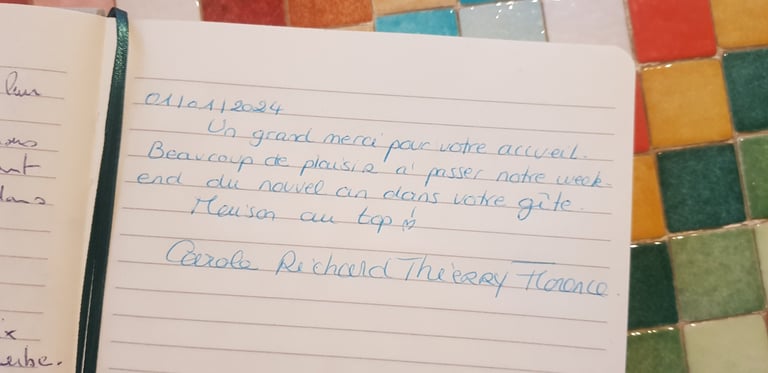 01/01/2024
Un grand merci pour votre accueil.
Beaucoup de plaisir à passer notre week-
end du nouvel an dans votre gîte.
Maison au top !
Carole Richard Thierry Florence.
leur
nt
dans
x